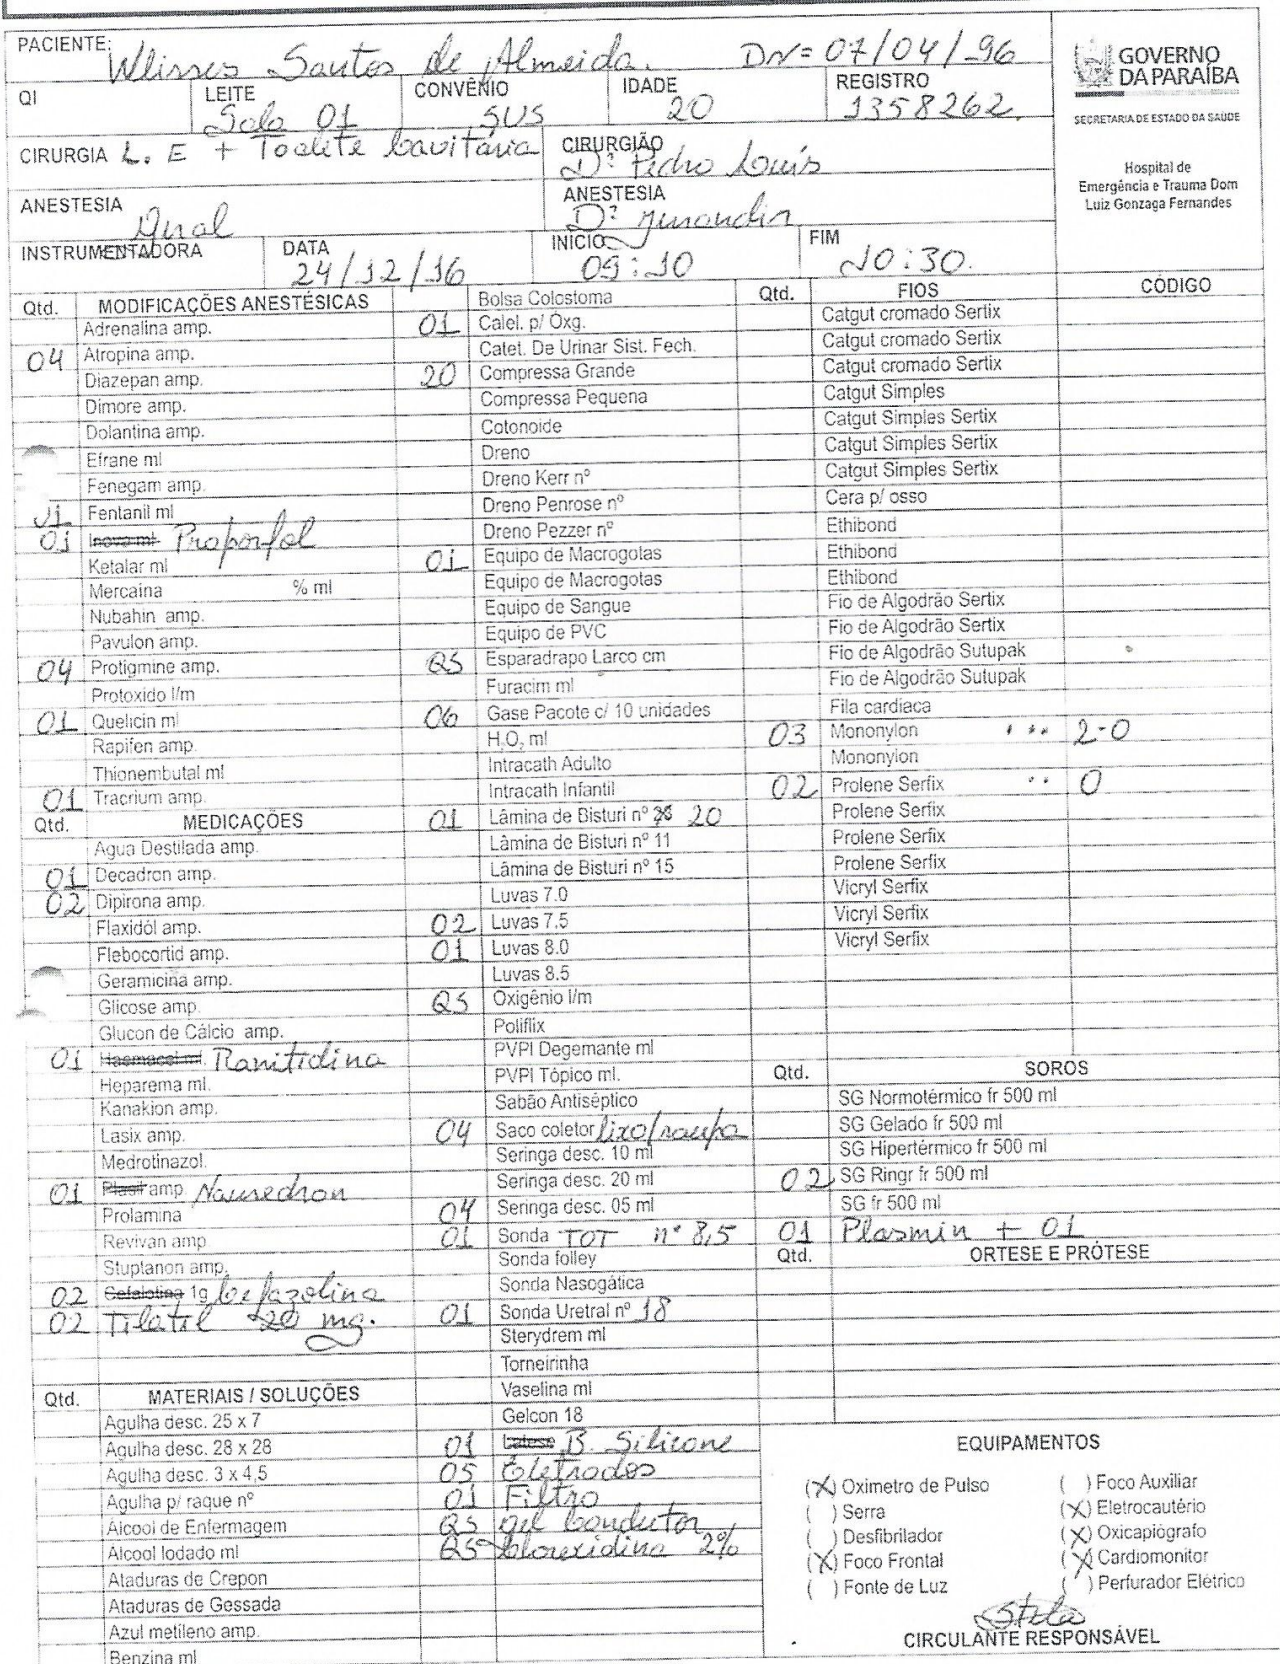 PACIENTE: Ulisses Santos de Almeida. DN= 07/04/96
GOVERNO DA PARAÍBA
SECRETARIA DE ESTADO DA SAÚDE
Hospital de
Emergência e Trauma Dom
Luiz Gonzaga Fernandes
QI LEITE Sala 01 CONVÊNIO SUS IDADE 20 REGISTRO 1358262.
CIRURGIA L. E + Toalete Cavitária CIRURGIÃO Dr. Pedro Luís
ANESTESIA Geral ANESTESIA Dr. Jurandir
INSTRUMENTADORA DATA 24/12/16 INÍCIO 09:10 FIM 10:30.
Qtd. MODIFICAÇÕES ANESTÉSICAS
Adrenalina amp.
04 Atropina amp.
Diazepan amp.
Dimore amp.
Dolantina amp.
Efrane ml
Fenegam amp.
01 Fentanil ml
01 Inova ml Praporfol
Ketalar ml
Mercaina % ml
Nubahin amp.
Pavulon amp.
04 Protigmine amp.
Protoxido l/m
01 Quelicin ml
Rapifen amp.
Thionembutal ml
01 Tracrium amp.
Qtd. MEDICAÇÕES
Agua Destilada amp.
01 Decadron amp.
02 Dipirona amp.
Flaxidól amp.
Flebocortid amp.
Geramicina amp.
Glicose amp.
Glucon de Cálcio amp.
01 Haemacel ml. Ranitidina
Heparema ml.
Kanakion amp.
Lasix amp.
Medrotinazol.
01 Plasil amp Nausedron
Prolamina
Revivan amp
Stuptanon amp.
02 Cefalotina 1g Cefazolina
02 Tilatil 20 mg.
Qtd. MATERIAIS / SOLUÇÕES
Agulha desc. 25 x 7
Agulha desc. 28 x 28
Agulha desc. 3 x 4,5
Agulha p/ raque nº
Álcool de Enfermagem
Alcool Iodado ml
Ataduras de Crepon
Ataduras de Gessada
Azul metileno amp.
Benzina ml
Bolsa Colostoma
01 Catet. p/ Óxg.
Catet. De Urinar Sist. Fech.
20 Compressa Grande
Compressa Pequena
Cotonoide
Dreno
Dreno Kerr nº
Dreno Penrose nº
Dreno Pezzer nº
01 Equipo de Macrogotas
Equipo de Macrogotas
Equipo de Sangue
Equipo de PVC
QS Esparadrapo Larco cm
Furacim ml
06 Gase Pacote c/ 10 unidades
H2O2 ml
Intracath Adulto
Intracath Infantil
01 Lâmina de Bisturi nº 20
Lâmina de Bisturi nº 11
Lâmina de Bisturi nº 15
Luvas 7.0
02 Luvas 7.5
01 Luvas 8.0
Luvas 8.5
QS Oxigênio l/m
Poliflix
PVPI Degemante ml
PVPI Tópico ml.
Sabão Antiséptico
04 Saco coletor lixo/roupa
Seringa desc. 10 ml
Seringa desc. 20 ml
04 Seringa desc. 05 ml
01 Sonda TOT nº 8,5
Sonda folley
Sonda Nasogática
01 Sonda Uretral nº 18
Sterydrem ml
Torneirinha
Vaselina ml
Gelcon 18
01 B. Silicone
05 Eletrodos
01 Filtro
QS gel Condutor
QS Clorexidina 2%
Qtd. FIOS CÓDIGO
Catgut cromado Sertix
Catgut cromado Sertix
Catgut cromado Sertix
Catgut Simples
Catgut Simples Sertix
Catgut Simples Sertix
Catgut Simples Sertix
Cera p/ osso
Ethibond
Ethibond
Ethibond
Fio de Algodrão Sertix
Fio de Algodrão Sertix
Fio de Algodrão Sutupak
Fio de Algodrão Sutupak
Fila cardiaca
03 Mononylon 2-0
Mononylon
02 Prolene Serfix 0
Prolene Serfix
Prolene Serfix
Prolene Serfix
Vicryl Serfix
Vicryl Serfix
Vicryl Serfix
Qtd. SOROS
SG Normotérmico fr 500 ml
SG Gelado fr 500 ml
SG Hipertérmico fr 500 ml
02 SG Ringr fr 500 ml
SG fr 500 ml
01 Plasmin + 01
Qtd. ORTESE E PRÓTESE
EQUIPAMENTOS
(X) Oximetro de Pulso ( ) Foco Auxiliar
( ) Serra (X) Eletrocautério
( ) Desfibrilador (X) Oxicapiógrafo
(X) Foco Frontal (X) Cardiomonitor
( ) Fonte de Luz ( ) Perfurador Elétrico
Stela
CIRCULANTE RESPONSÁVEL